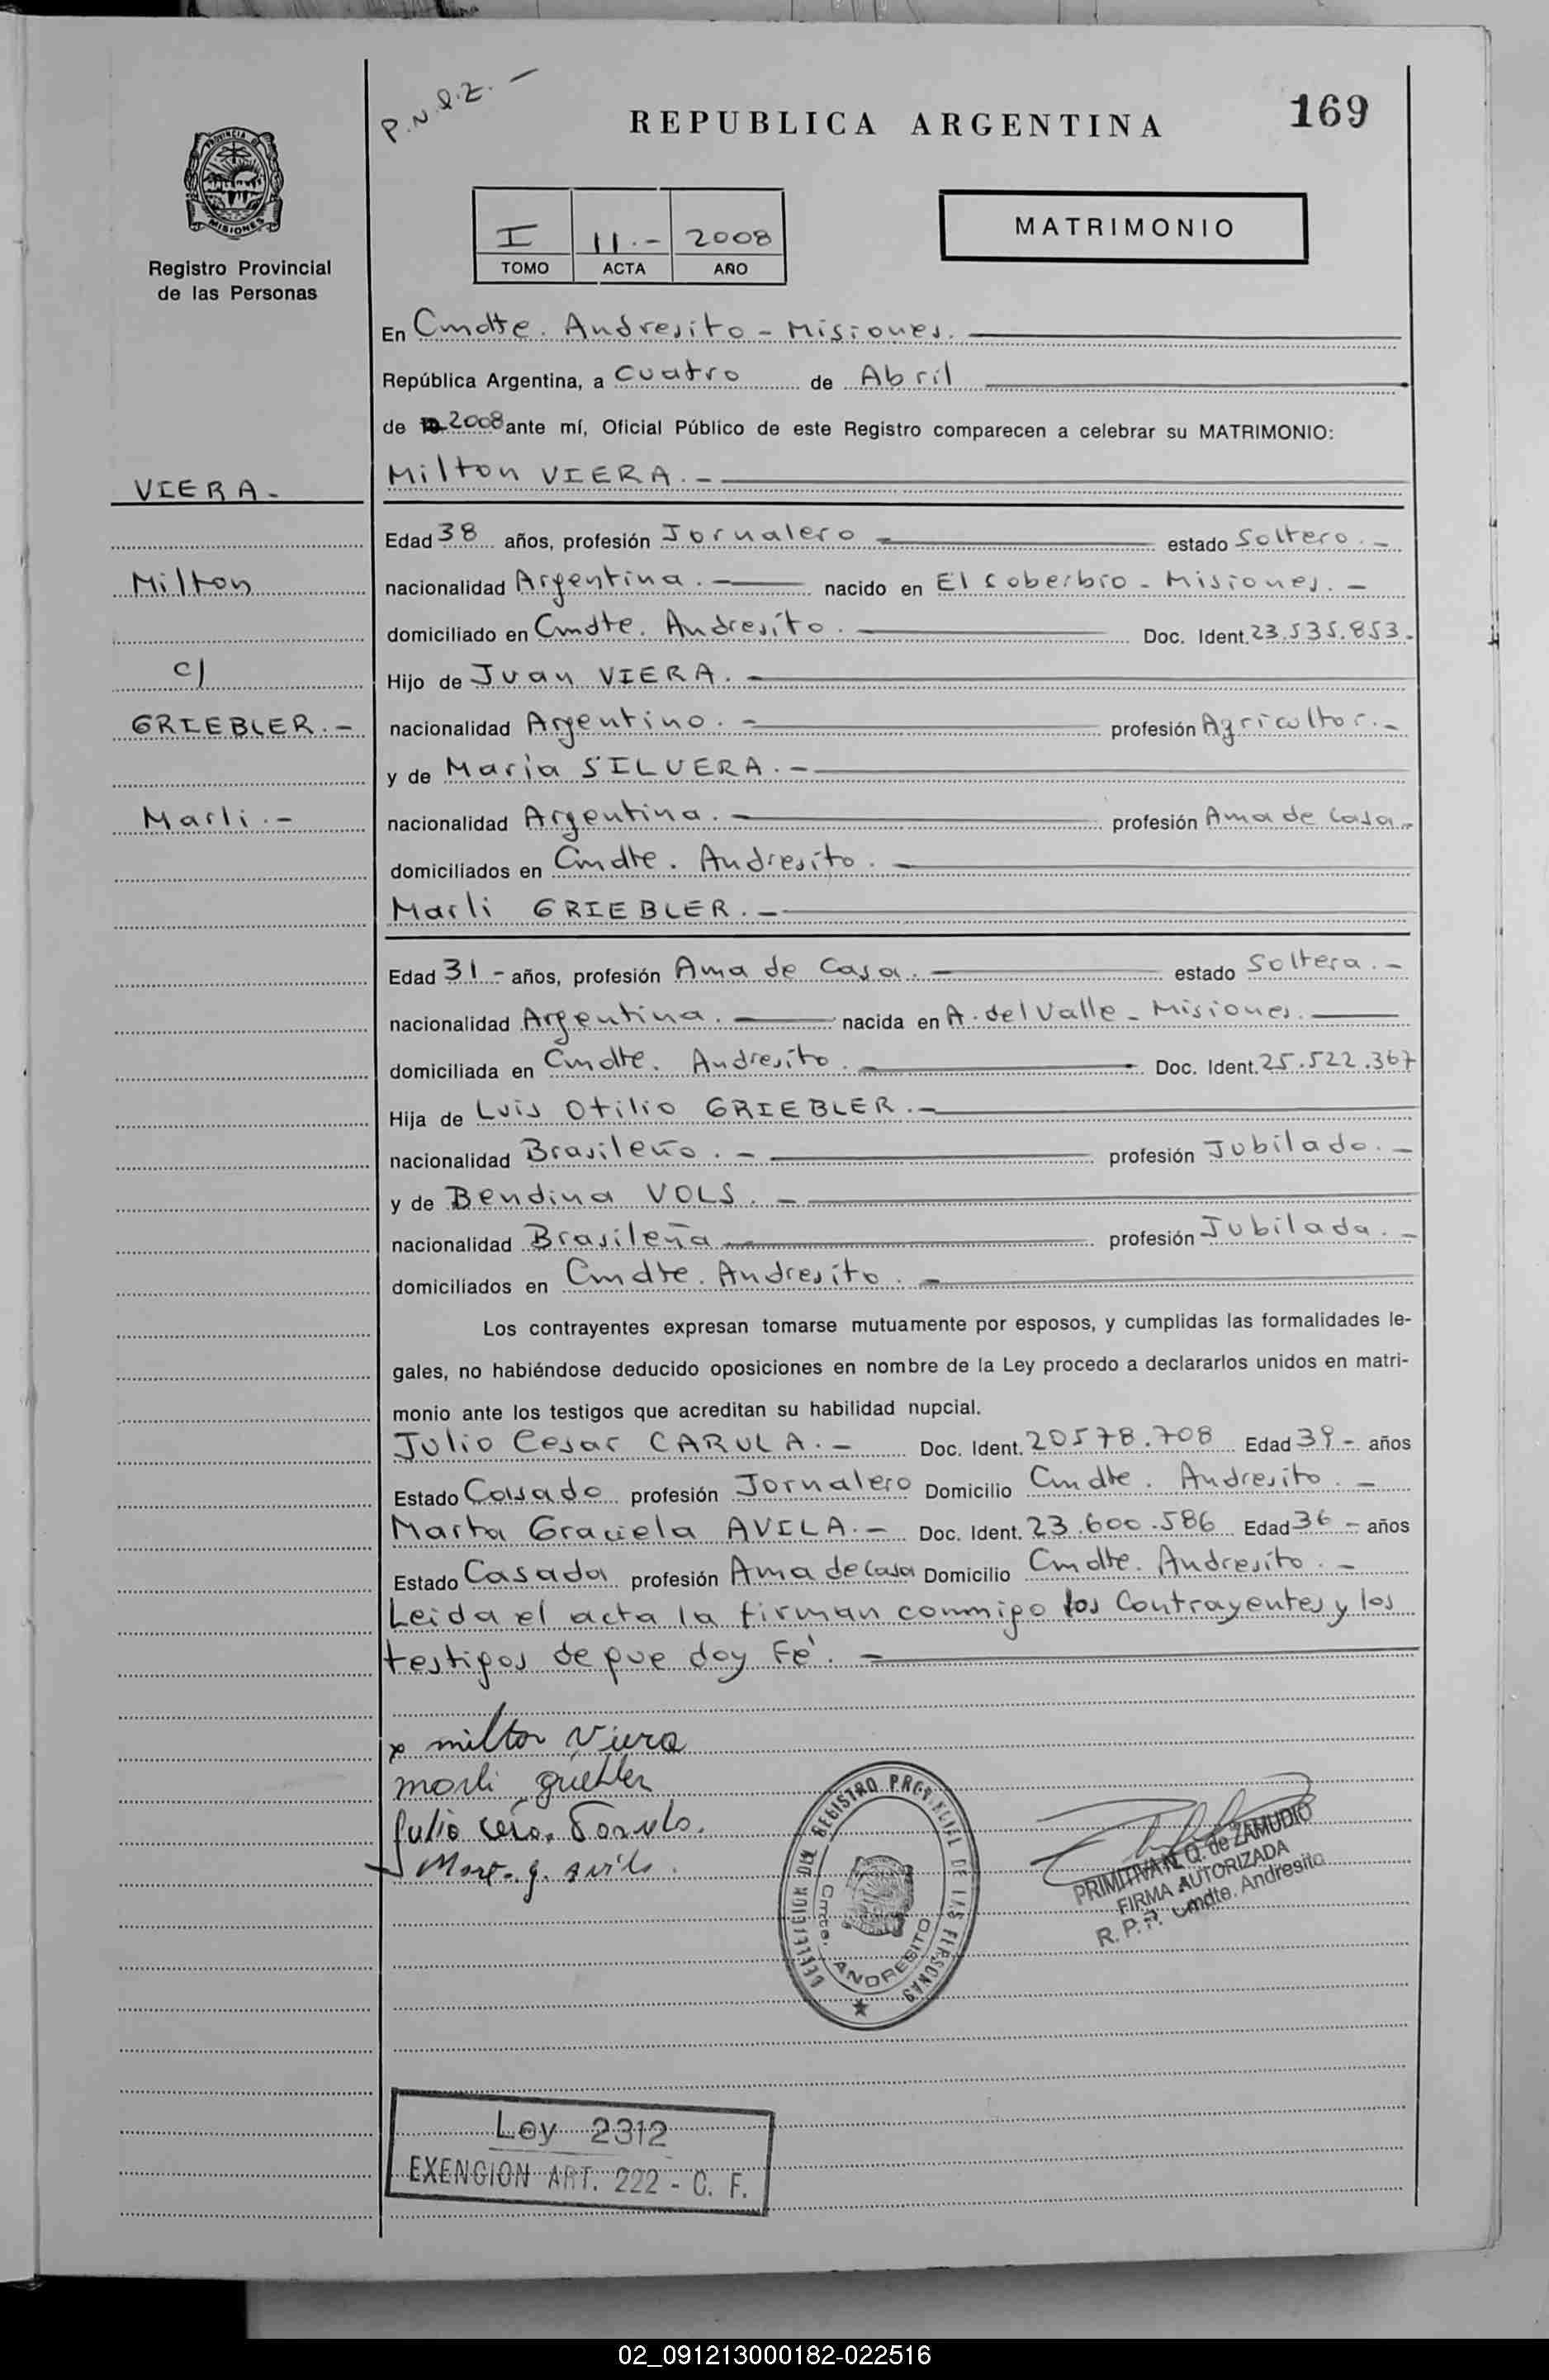 P.N.Q.Z. —
REPUBLICA ARGENTINA
169
PROVINCIA DE
MISIONES
Registro Provincial
de las Personas
I 11.- 2008
TOMO ACTA AÑO
MATRIMONIO
En Cmdte. Andresito - Misiones.
República Argentina, a cuatro de Abril
de 2008 ante mí, Oficial Público de este Registro comparecen a celebrar su MATRIMONIO:
VIERA.-
Milton VIERA.-
Edad 38 años, profesión Jornalero estado Soltero.-
Milton
nacionalidad Argentina.- nacido en El Soberbio - Misiones.-
domiciliado en Cmdte. Andresito. Doc. Ident. 23.535.853.
c/
Hijo de Juan VIERA.
GRIEBLER.-
nacionalidad Argentino.- profesión Agricultor.-
y de Maria SILVERA.-
Marli.-
nacionalidad Argentina. profesión Ama de Casa.
domiciliados en Cmdte. Andresito.
Marli GRIEBLER.-
Edad 31- años, profesión Ama de Casa. estado Soltera.-
nacionalidad Argentina. nacida en A. del Valle - Misiones.
domiciliada en Cmdte. Andresito. Doc. Ident. 25.522.367
Hija de Luis Otilio GRIEBLER.-
nacionalidad Brasileño.- profesión Jubilado.-
y de Bendina VOLS.-
nacionalidad Brasileña profesión Jubilada.-
domiciliados en Cmdte. Andresito.-
Los contrayentes expresan tomarse mutuamente por esposos, y cumplidas las formalidades le-
gales, no habiéndose deducido oposiciones en nombre de la Ley procedo a declararlos unidos en matri-
monio ante los testigos que acreditan su habilidad nupcial.
Julio Cesar CARULA.- Doc. Ident. 20578.708 Edad 39- años
Estado Casado profesión Jornalero Domicilio Cmdte. Andresito.-
Marta Graciela AVILA.- Doc. Ident. 23.600.586 Edad 36- años
Estado Casada profesión Ama de Casa Domicilio Cmdte. Andresito.-
Leida el acta la firman conmigo los Contrayentes y los
testigos de que doy Fé.-
x milton Viera
marli griebler
Julio
Mart. g. avila.
DELEGACION DEL REGISTRO PROVINCIAL DE LAS PERSONAS
Cmdte. ANDRESITO
PRIMITIVA N. Q. de ZAMUDIO
FIRMA AUTORIZADA
R. P. P. Cmdte. Andresito
Ley 2312
EXENCION ART. 222 - C. F.
02_091213000182-022516